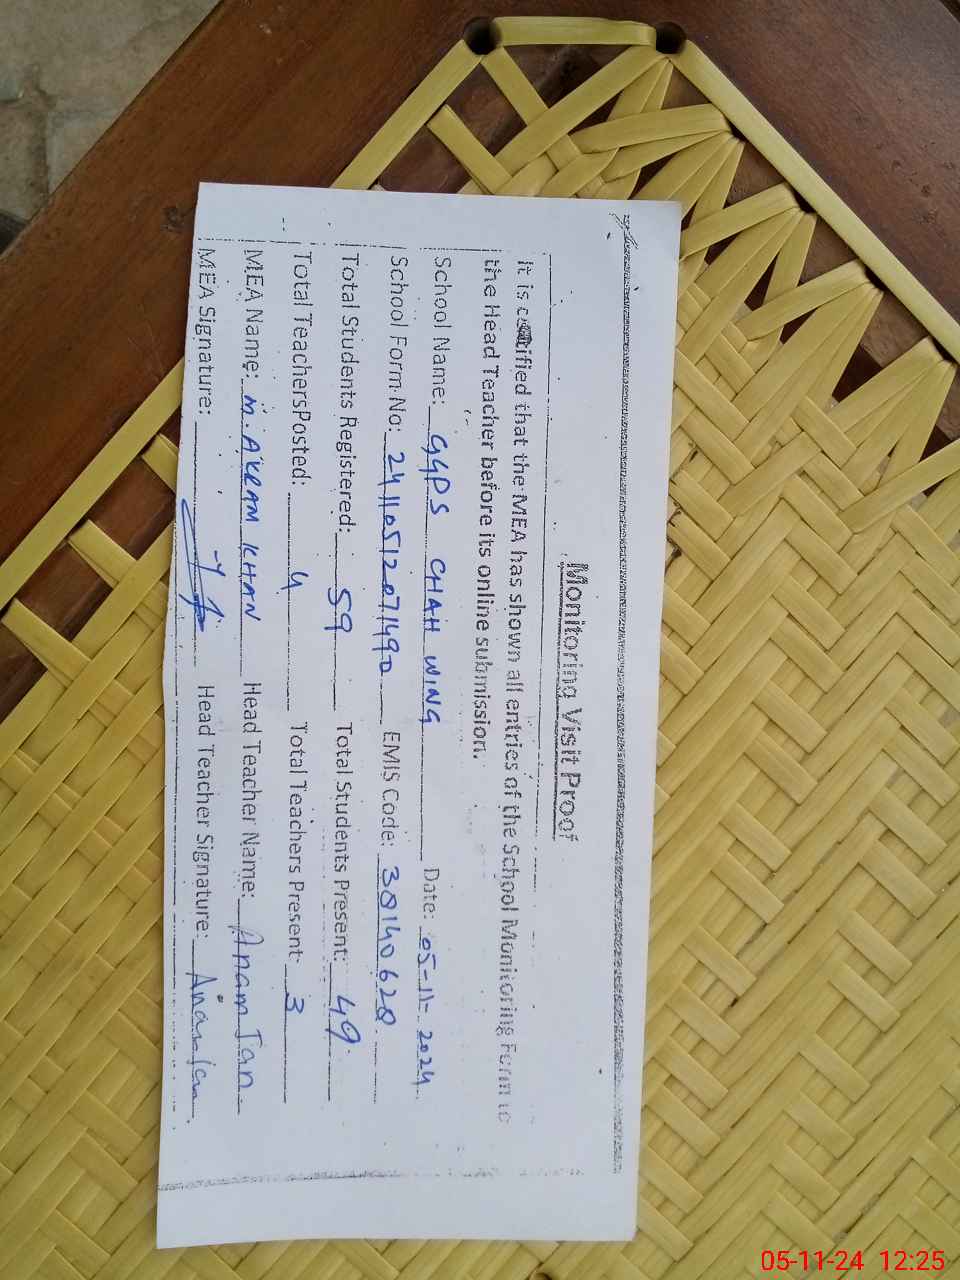 Monitoring Visit Proof
It is certified that the MEA has shown all entries of the School Monitoring Form to
the Head Teacher before its online submission.
School Name: GGPS CHAH WING Date: 05-11-2024
School Form No: 24110512071490 EMIS Code: 38140628
Total Students Registered: 59 Total Students Present: 49
Total TeachersPosted: 4 Total Teachers Present: 3
MEA Name: M. AKRAM KHAN Head Teacher Name: Anam Jan
MEA Signature: Head Teacher Signature: Anam Jan
05-11-24 12:25